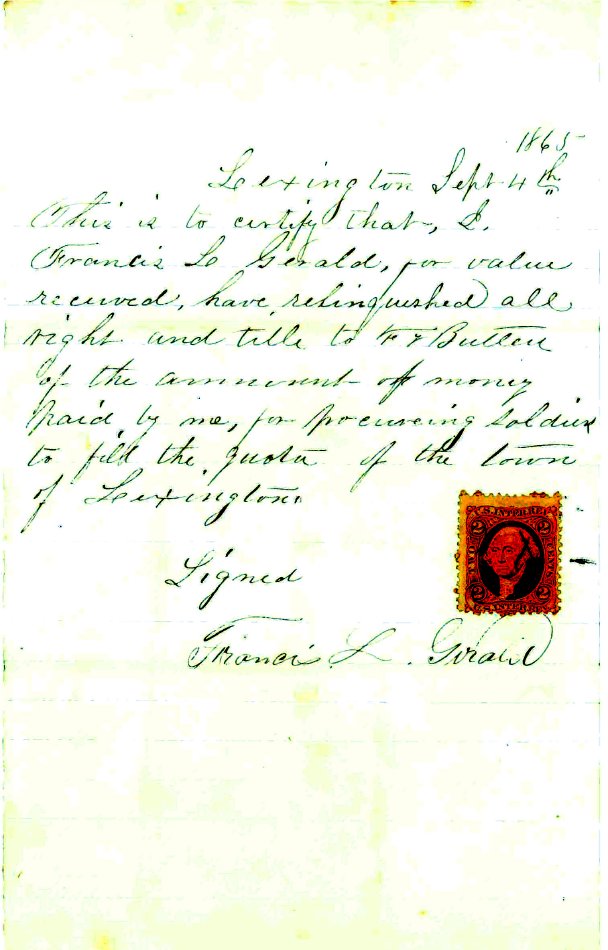 1865
Lexington Sept 4th
This is to certify that, I.
Francis L Gerald, for value
received, have relinquished all
right and title to F F Butten
of the ammount of money
paid by me, for procureing soldiers
to fill the quota of the town
of Lexington.
U.S. INTER. REV.
2 2
TWO CENTS
2 2
U.S. INTER. REV.
Signed
Francis L. Girald